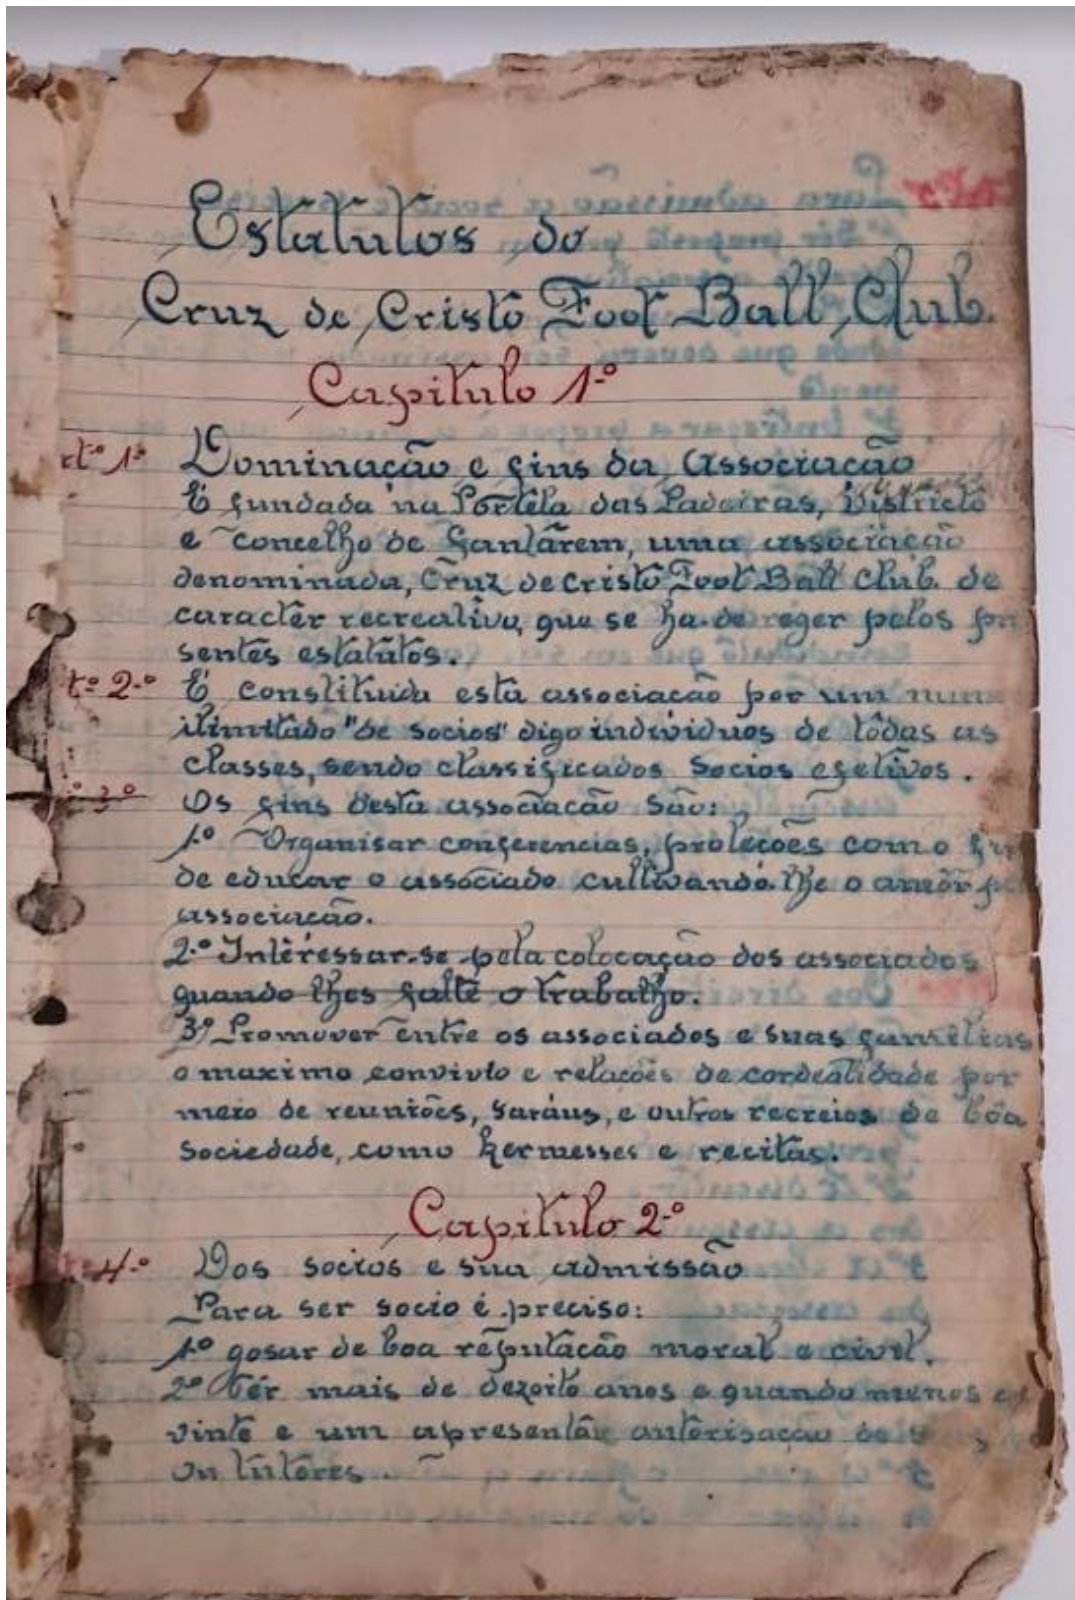 Estatutos do
Cruz de Cristo Foot Ball Club.
Capitulo 1º
tº 1º Dominação e fins da Associação
É fundada na Portela das Padeiras, Districto
e concelho de Santarem, uma associação
denominada, Cruz de Cristo Foot Ball Club. de
caracter recreativo, que se ha-de reger pelos
sentes estatutos.
tº 2º É constituida esta associação por um
ilimitado "de socios" digo individuos de tôdas as
classes, sendo classificados Socios efetivos.
3º Os fins desta associação são:
1º Organisar conferencias, proleções com o
de educar o associado cultivando-lhe o amôr
associação.
2º Intêressar-se pela colocação dos associados
quando lhes falte o trabalho.
3º Promover entre os associados e suas familias
o maximo convivio e relações de cordealidade por
meio de reuniões, saráus, e outros recreios de bôa
Sociedade, como kermesses e recitas.
Capitulo 2º
tº 4º Dos socios e sua admissão
Para ser socio é preciso:
1º gosar de boa reputação moral e civil.
2º Têr mais de dezoito anos e quando menos
vinte e um apresentar autorisação de
ou tutores.